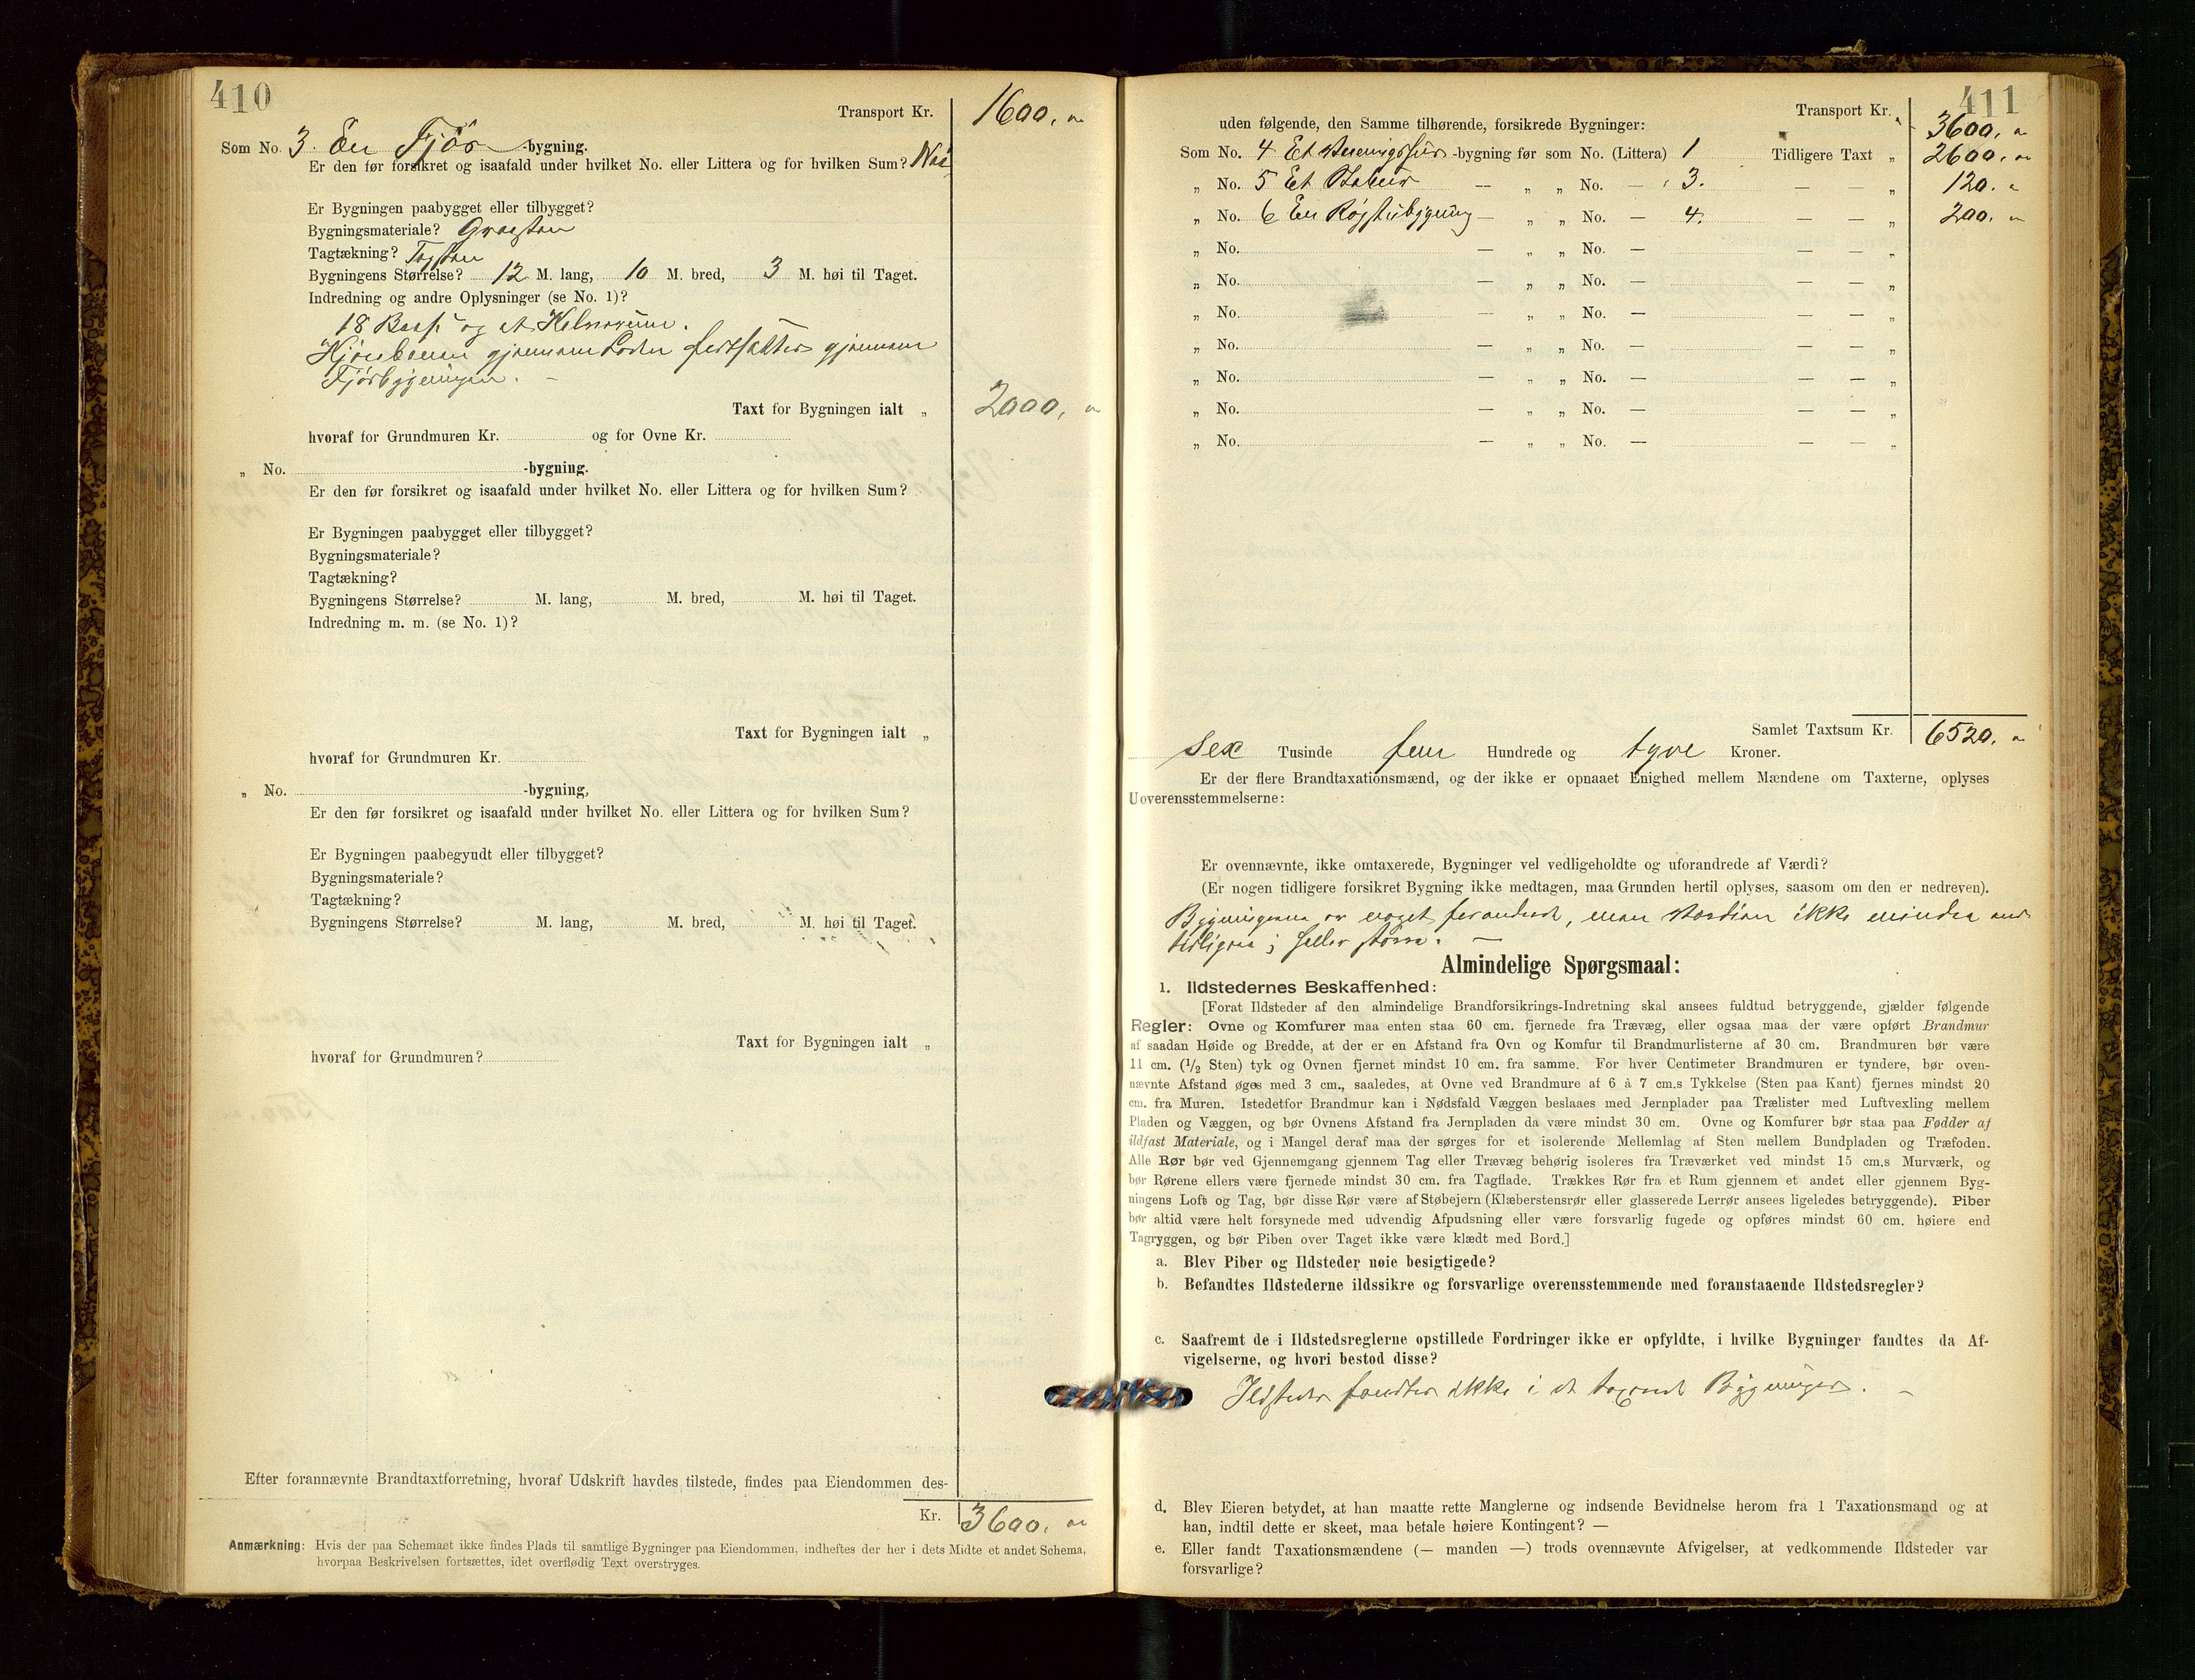 410
Transport Kr. 1600, "
Som No. 3. En Fjös -bygning.
Er den før forsikret og isaafald under hvilket No. eller Littera og for hvilken Sum? Nei
Er Bygningen paabygget eller tilbygget?
Bygningsmateriale? Graasten
Tagtækning? Tagsten
Bygningens Størrelse? 12 M. lang, 10 M. bred, 3 M. høi til Taget.
Indredning og andre Oplysninger (se No. 1)?
18 Baase og et Kalverum.
Kjörebroen gjennem Loden fortsætter gjennem
Fjösbygningen. –
Taxt for Bygningen ialt „ 2000, "
hvoraf for Grundmuren Kr. og for Ovne Kr.
„ No. -bygning.
Er den før forsikret og isaafald under hvilket No. eller Littera og for hvilken Sum?
Er Bygningen paabygget eller tilbygget?
Bygningsmateriale?
Tagtækning?
Bygningens Størrelse? M. lang, M. bred, M. høi til Taget.
Indredning m. m. (se No. 1)?
Taxt for Bygningen ialt „
hvoraf for Grundmuren Kr.
„ No. -bygning,
Er den før forsikret og isaafald under hvilket No. eller Littera og for hvilken Sum?
Er Bygningen paabegyndt eller tilbygget?
Bygningsmateriale?
Tagtækning?
Bygningens Størrelse? M. lang, M. bred, M. høi til Taget.
Taxt for Bygningen ialt „
hvoraf for Grundmuren?
Efter forannævnte Brandtaxtforretning, hvoraf Udskrift havdes tilstede, findes paa Eiendommen des-
Kr. 3600, "
Anmærkning: Hvis der paa Schemaet ikke findes Plads til samtlige Bygninger paa Eiendommen, indheftes der her i dets Midte et andet Schema,
hvorpaa Beskrivelsen fortsættes, idet overflødig Text overstryges.
411
Transport Kr. 3600, "
uden følgende, den Samme tilhørende, forsikrede Bygninger:
Som No. 4 Et Vaaningshus -bygning før som No. (Littera) 1 Tidligere Taxt „ 2600, "
„ No. 5 Et Stabur — „ „ No. — 3. — — „ 120. "
„ No. 6 En Røgstubygning — „ „ No. — 4. — — „ 200. "
„ No. — „ „ No. — — — „
„ No. — „ „ No. — — — „
„ No. — „ „ No. — — — „
„ No. — „ „ No. — — — „
„ No. — „ „ No. — — — „
„ No. — „ „ No. — — — „
„ No. — „ „ No. — — — „
Samlet Taxtsum Kr. 6520, "
sex Tusinde fem Hundrede og tyve Kroner.
Er der flere Brandtaxationsmænd, og der ikke er opnaaet Enighed mellem Mændene om Taxterne, oplyses
Uoverensstemmelserne:
Er ovennævnte, ikke omtaxerede, Bygninger vel vedligeholdte og uforandrede af Værdi?
(Er nogen tidligere forsikret Bygning ikke medtagen, maa Grunden hertil oplyses, saasom om den er nedreven).
Bygningerne er noget forandret, men Værdien ikke mindre end
tidligere; heller större. —
Almindelige Spørgsmaal:
1. Ildstedernes Beskaffenhed:
[Forat Ildsteder af den almindelige Brandforsikrings-Indretning skal ansees fuldtud betryggende, gjælder følgende
Regler: Ovne og Komfurer maa enten staa 60 cm. fjernede fra Trævæg, eller ogsaa maa der være opført Brandmur
af saadan Høide og Bredde, at der er en Afstand fra Ovn og Komfur til Brandmurlisterne af 30 cm. Brandmuren bør være
11 cm. (1/2 Sten) tyk og Ovnen fjernet mindst 10 cm. fra samme. For hver Centimeter Brandmuren er tyndere, bør oven-
nævnte Afstand øges med 3 cm., saaledes, at Ovne ved Brandmure af 6 à 7 cm.s Tykkelse (Sten paa Kant) fjernes mindst 20
cm. fra Muren. Istedetfor Brandmur kan i Nødsfald Væggen beslaaes med Jernplader paa Trælister med Luftvexling mellem
Pladen og Væggen, og bør Ovnens Afstand fra Jernpladen da være mindst 30 cm. Ovne og Komfurer bør staa paa Fødder af
ildfast Materiale, og i Mangel deraf maa der sørges for et isolerende Mellemlag af Sten mellem Bundpladen og Træfoden.
Alle Rør bør ved Gjennemgang gjennem Tag eller Trævæg behørig isoleres fra Træværket ved mindst 15 cm.s Murværk, og
bør Rørene ellers være fjernede mindst 30 cm. fra Tagflade. Trækkes Rør fra et Rum gjennem et andet eller gjennem Byg-
ningens Loft og Tag, bør disse Rør være af Støbejern (Klæberstensrør eller glasserede Lerrør ansees ligeledes betryggende). Piber
bør altid være helt forsynede med udvendig Afpudsning eller være forsvarlig fugede og opføres mindst 60 cm. høiere end
Tagryggen, og bør Piben over Taget ikke være klædt med Bord.]
a. Blev Piber og Ildsteder nøie besigtigede?
b. Befandtes Ildstederne ildssikre og forsvarlige overensstemmende med foranstaaende Ildstedsregler?
c. Saafremt de i Ildstedsreglerne opstillede Fordringer ikke er opfyldte, i hvilke Bygninger fandtes da Af-
vigelserne, og hvori bestod disse?
Ildsteder fandtes ikke i de taxerede Bygninger. –
d. Blev Eieren betydet, at han maatte rette Manglerne og indsende Bevidnelse herom fra 1 Taxationsmand og at
han, indtil dette er skeet, maa betale høiere Kontingent? —
e. Eller fandt Taxationsmændene (— manden —) trods ovennævnte Afvigelser, at vedkommende Ildsteder var
forsvarlige?